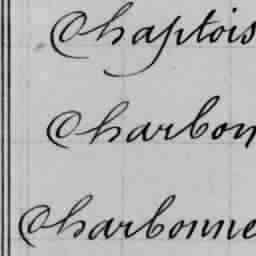 Chaptois
Charbon
Charbonne